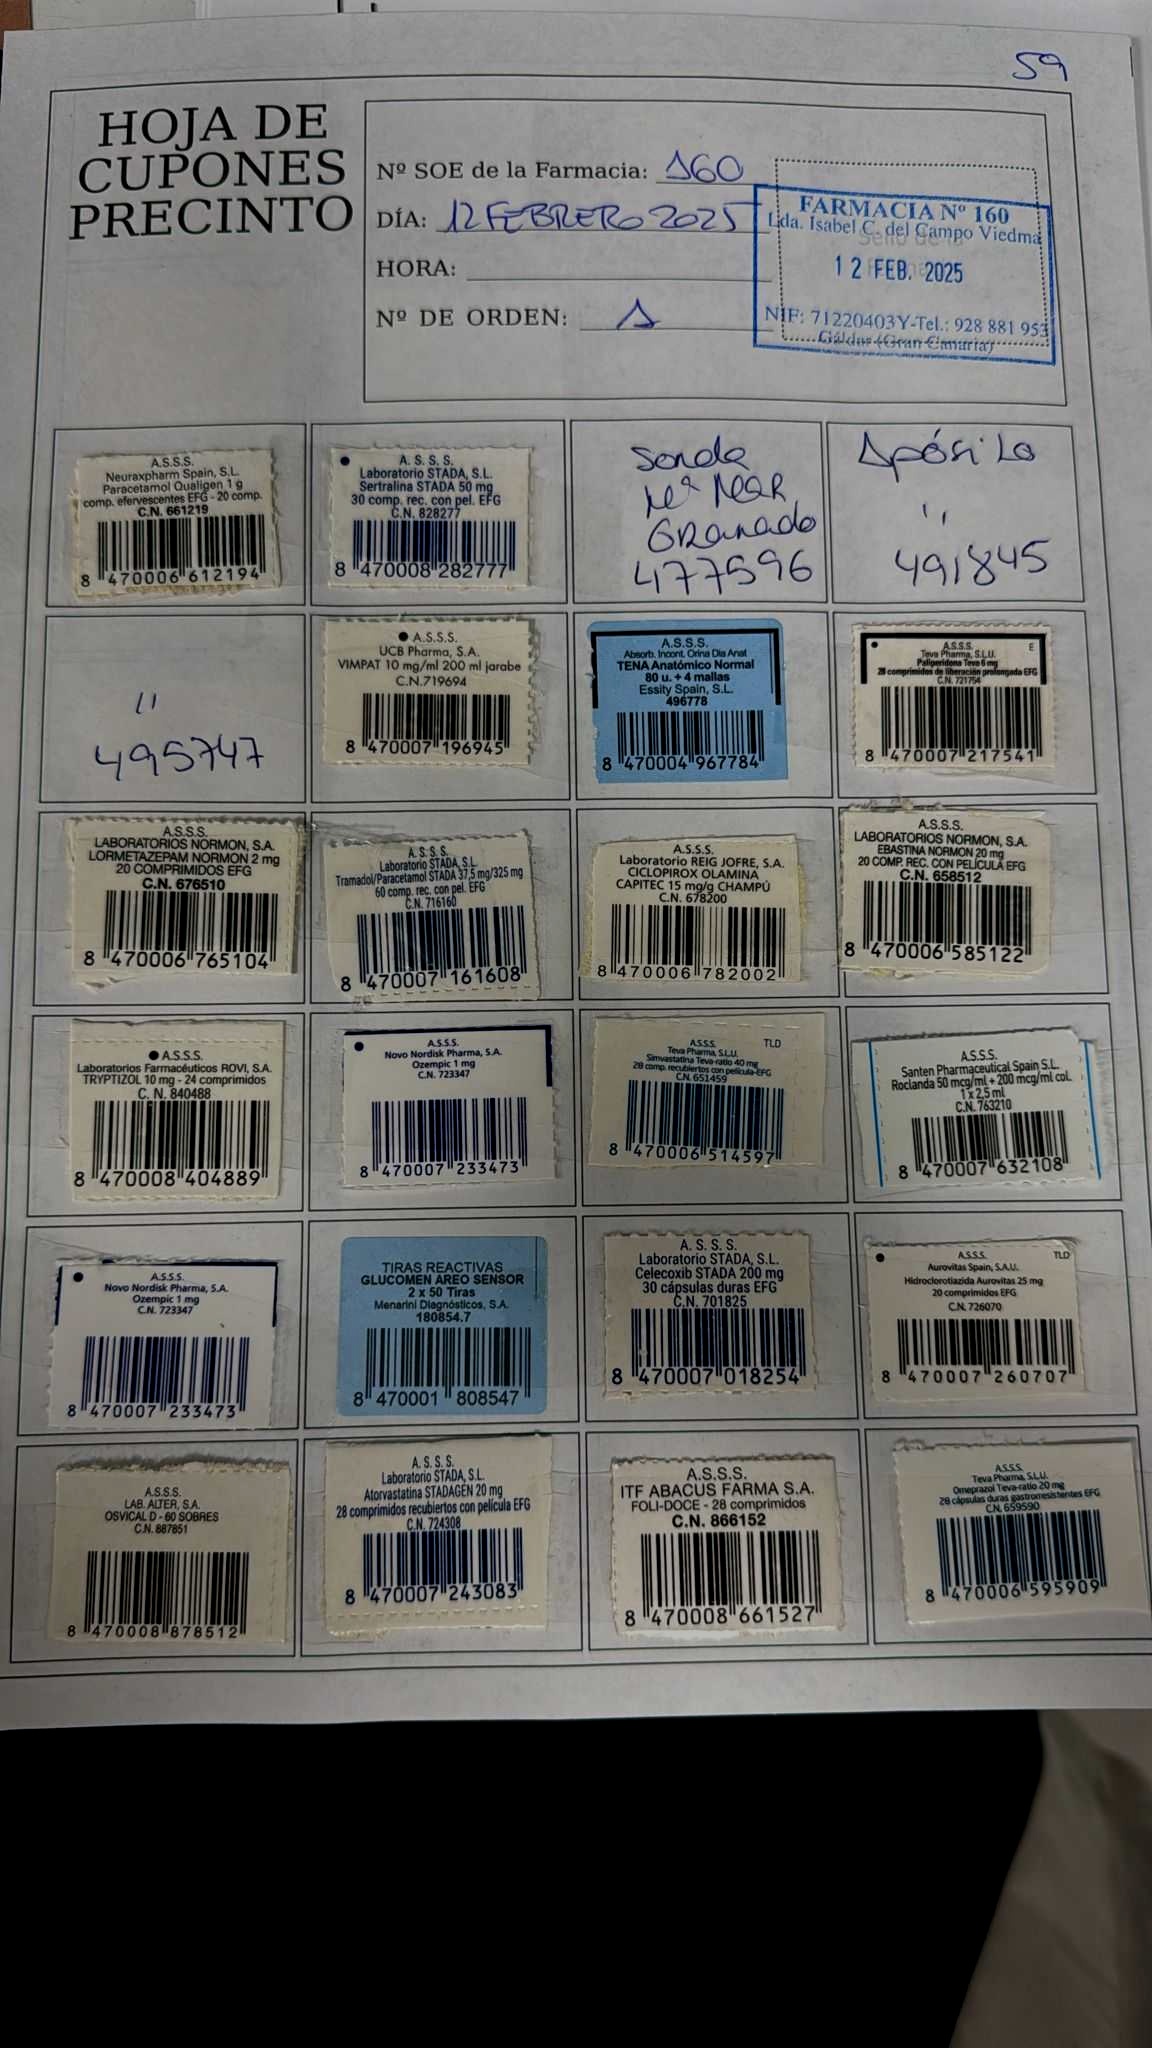 59
HOJA DE
CUPONES
PRECINTO
Nº SOE de la Farmacia: 160
DÍA: 12 FEBRERO 2025
HORA:
Nº DE ORDEN: 1
FARMACIA Nº 160
Lda. Isabel C. del Campo Viedma
Sello de la
12 FEB. 2025
NIF: 71220403Y-Tel.: 928 881 953
Gáldar (Gran Canaria)
A.S.S.S.
Neuraxpharm Spain, S.L.
Paracetamol Qualigen 1 g
comp. efervescentes EFG - 20 comp.
C.N. 661219
8 470006 612194
A. S. S. S.
Laboratorio STADA, S.L.
Sertralina STADA 50 mg
30 comp. rec. con pel. EFG
C.N. 828277
8 470008 282777
Sonda
Mª Mar
Granado
477596
Apósito
"
491845
"
495747
A.S.S.S.
UCB Pharma, S.A.
VIMPAT 10 mg/ml 200 ml jarabe
C.N.719694
8 470007 196945
A.S.S.S.
Absorb. Incont. Orina Dia Anat
TENA Anatómico Normal
80 u. + 4 mallas
Essity Spain, S.L.
496778
8 470004 967784
A.S.S.S. E
Teva Pharma, S.L.U.
Paliperidona Teva 6 mg
28 comprimidos de liberación prolongada EFG
C.N. 721754
8 470007 217541
A.S.S.S.
LABORATORIOS NORMON, S.A.
LORMETAZEPAM NORMON 2 mg
20 COMPRIMIDOS EFG
C.N. 676510
8 470006 765104
A. S. S. S.
Laboratorio STADA, S.L.
Tramadol/Paracetamol STADA 37,5 mg/325 mg
60 comp. rec. con pel. EFG
C.N. 716160
8 470007 161608
A.S.S.S.
Laboratorio REIG JOFRE, S.A.
CICLOPIROX OLAMINA
CAPITEC 15 mg/g CHAMPÚ
C.N. 678200
8 470006 782002
A.S.S.S.
LABORATORIOS NORMON, S.A.
EBASTINA NORMON 20 mg
20 COMP. REC. CON PELÍCULA EFG
C.N. 658512
8 470006 585122
A.S.S.S.
Laboratorios Farmacéuticos ROVI, S.A.
TRYPTIZOL 10 mg - 24 comprimidos
C. N. 840488
8 470008 404889
A.S.S.S.
Novo Nordisk Pharma, S.A.
Ozempic 1 mg
C.N. 723347
8 470007 233473
A.S.S.S. TLD
Teva Pharma, S.L.U.
Simvastatina Teva-ratio 40 mg
28 comp. recubiertos con película-EFG
C.N. 651459
8 470006 514597
A.S.S.S.
Santen Pharmaceutical Spain S.L.
Roclanda 50 mcg/ml + 200 mcg/ml col.
1 x 2,5 ml
C.N. 763210
8 470007 632108
A.S.S.S.
Novo Nordisk Pharma, S.A.
Ozempic 1 mg
C.N. 723347
8 470007 233473
TIRAS REACTIVAS
GLUCOMEN AREO SENSOR
2 x 50 Tiras
Menarini Diagnósticos, S.A.
180854.7
8 470001 808547
A. S. S. S.
Laboratorio STADA, S.L.
Celecoxib STADA 200 mg
30 cápsulas duras EFG
C.N. 701825
8 470007 018254
A.S.S.S. TLD
Aurovitas Spain, S.A.U.
Hidroclorotiazida Aurovitas 25 mg
20 comprimidos EFG
C.N. 726070
8 470007 260707
A.S.S.S.
LAB. ALTER, S.A.
OSVICAL D - 60 SOBRES
C.N. 887851
8 470008 878512
A. S. S. S.
Laboratorio STADA, S.L.
Atorvastatina STADAGEN 20 mg
28 comprimidos recubiertos con película EFG
C.N. 724308
8 470007 243083
A.S.S.S.
ITF ABACUS FARMA S.A.
FOLI-DOCE - 28 comprimidos
C.N. 866152
8 470008 661527
A.S.S.S.
Teva Pharma, S.L.U.
Omeprazol Teva-ratio 20 mg
28 cápsulas duras gastrorresistentes EFG
C.N. 659590
8 470006 595909